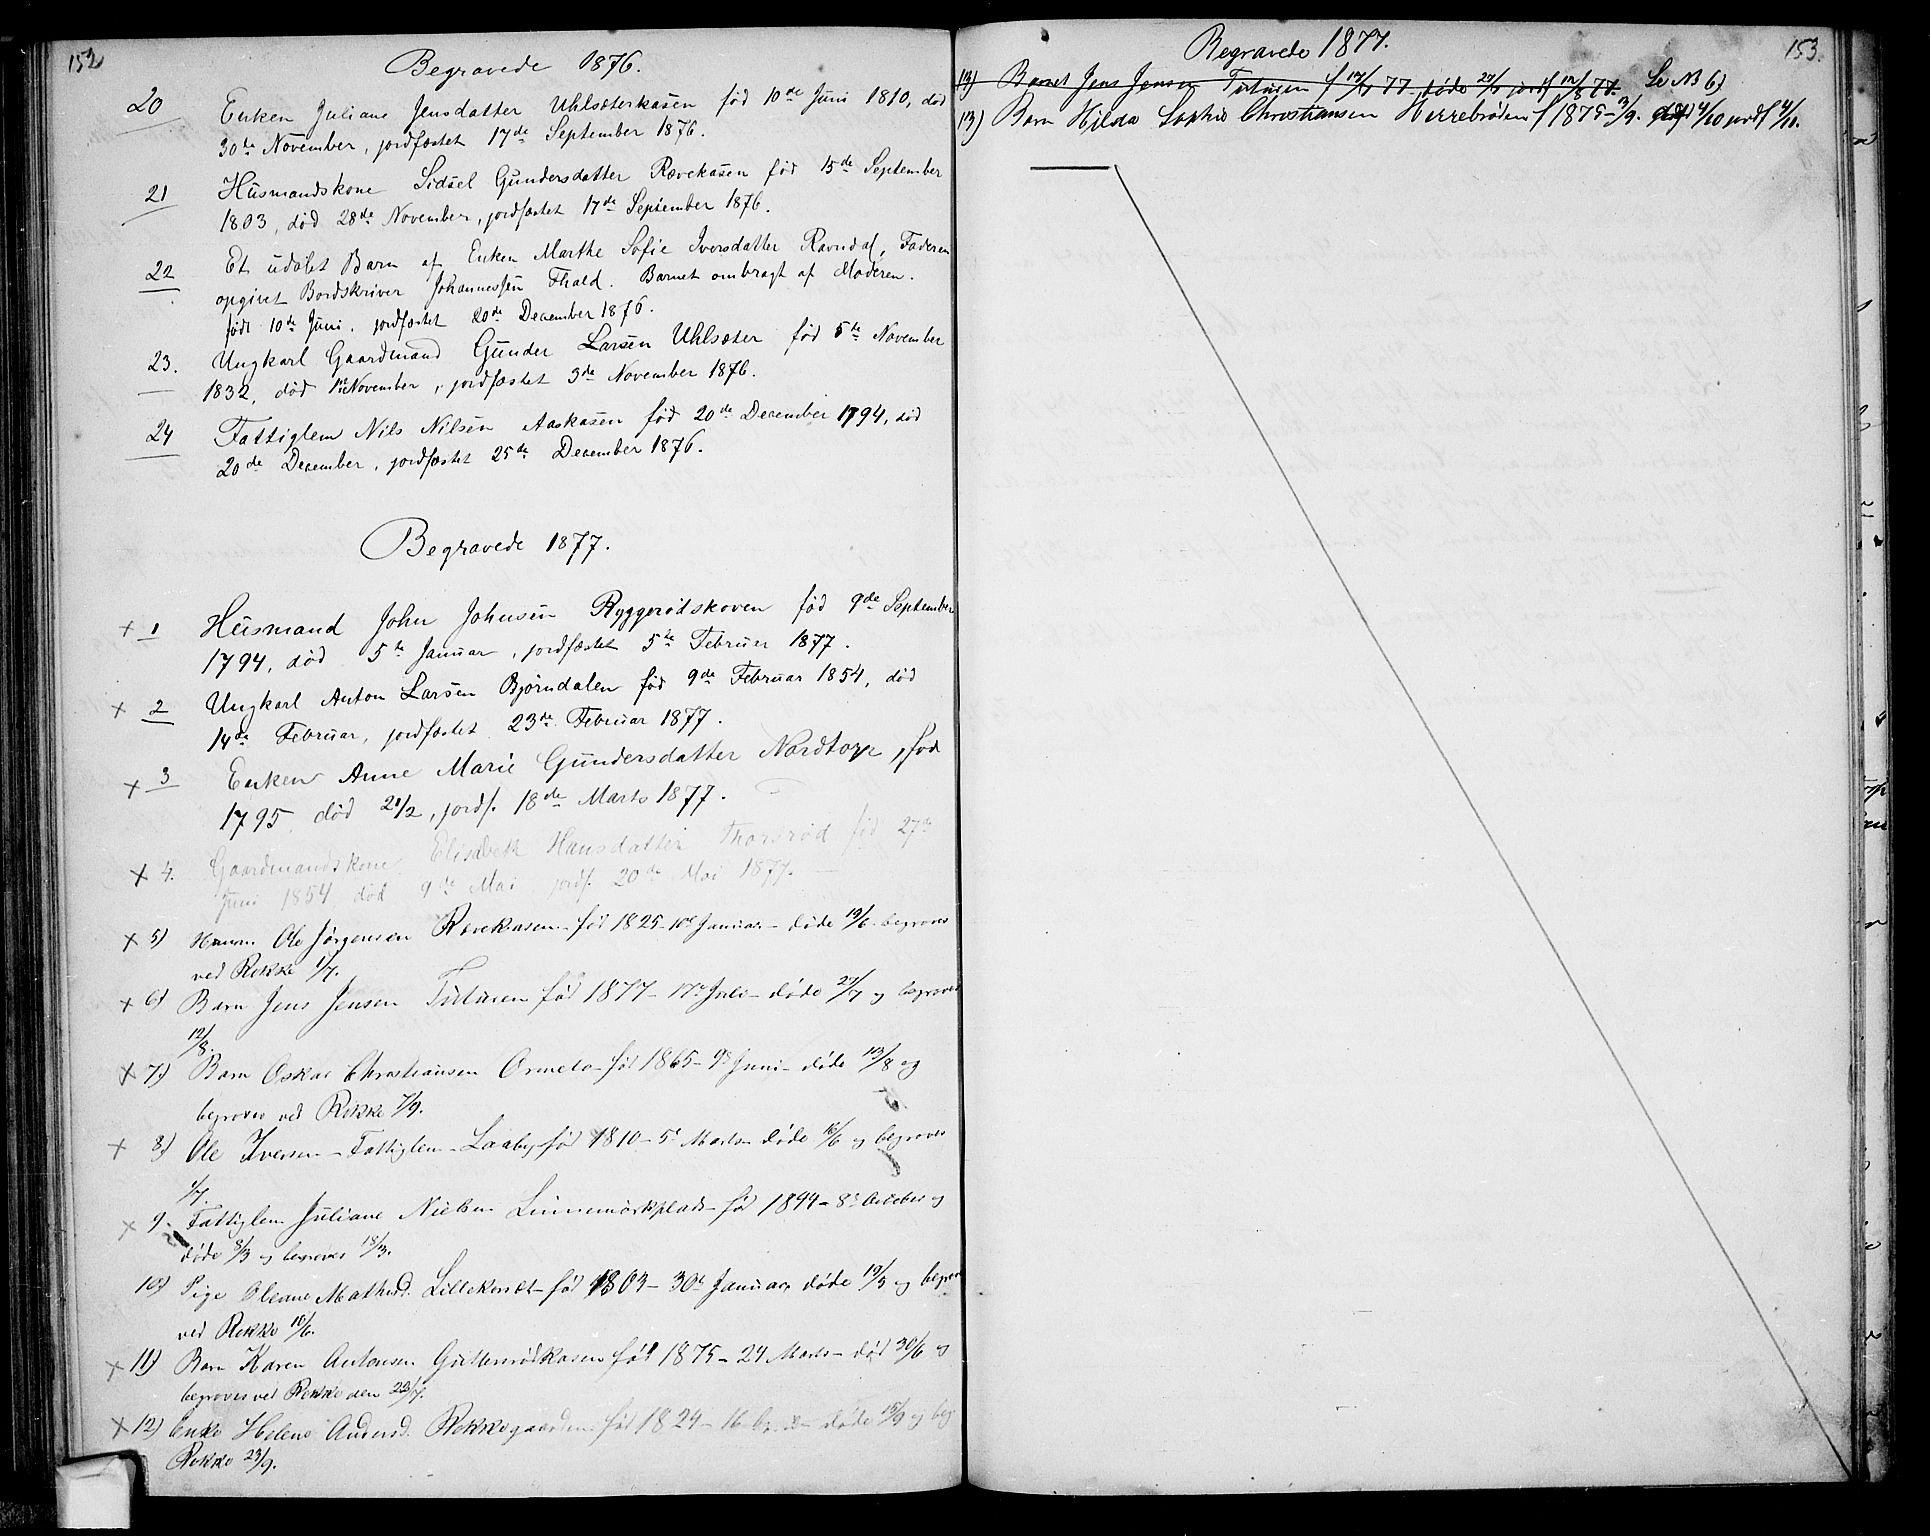 152
Begravede 1876.
20 Enken Juliane Jensdatter Uhlsæterkasen fød 10de Juni 1810, død
30de November, jordfæstet 17de September 1876.
21 Husmandskone Sidsel Gundersdatter Rævekasen fød 15de September
1803, død 28de November, jordfæstet 17de September 1876.
22 Et udøbt Barn af Enken Marthe Sofie Iversdatter Ravndal, Faderen
opgivet Bordskriver Johannessen Fhald. Barnet ombragt af Moderen.
født 10de Juni. jordfæstet 20de December 1876.
23. Ungkarl Gaardmand Gunder Larsen Uhlsæter fød 5te November
1832, død 1ste November, jordfæstet 3de November 1876.
24 Fattiglem Nils Nilsen Aaskasen fød 20de December 1794, død
20de December, jordfæstet 25de December 1876.
Begravede 1877.
+ 1 Husmand John Johnsen Ryggerødskoven fød 9de September
1794, død 5te Januar, jordfæstet 5te Februar 1877.
+ 2 Ungkarl Anton Larsen Bjørndalen fød 9de Februar 1854, død
14de Februar, jordfæstet 23de Februar 1877.
+ 3 Enken Anne Marie Gundersdatter Nordtorp, fød
1795, død 21/2, jordf. 18de Marts 1877.
+ 4. Gaardmandskone Elisabeth Hansdatter Thorsrød fød 27de
Juni 1854, død 9de Mai, jordf. 20de Mai 1877.
+ 5) Husm. Ole Jørgensen Rævekasen - fød 1825 - 10de Januar - døde 13/6 begraves
ved Rokke 1/7.
+ 6) Barn Jens Jensen Tutusen fød 1877 - 17de Juli - døde 27/7 og begraves
12/8.
+ 7) Barn Oskar Christiansen Ormelo - fød 1865 - 9de Juni - døde 13/8 og
begraves ved Rokke 7/9.
+ 8) Ole Iversen - Fattiglem - Laaby fød 1810 - 5te Marts døde 16/6 og begraves
1/7.
+ 9. Fattiglem Juliane Nielsen Linnemørkplads - fød 1844 - 8de October og
døde 8/3 og begraves 18/3.
10) Pige Oleane Mathisd. Lillekoret - fød 1803 - 30de Januar døde 19/5 og begraves
ved Rokke 10/6.
+ 11) Barn Karen Antonsen Guttersrødkasen fød 1875 - 24 Marts - død 30/6 og
begraves ved Rokke den 22/7.
+ 12) Enke Helene Andersd. Rokkegaarden fød 1824 - 16 - døde 15/9 og beg
Rokke 23/9.
Begravede 1877.
153.
13) Barnet Jens Jensen Tutusen f 17/7 77 - døde 27/7 jordf 12/8 77. Se N3 6)
13) Barn Hilda Sophie Christiansen Herrebrøden f 1875 - 3/9. død 4/10 jordf 4/11.